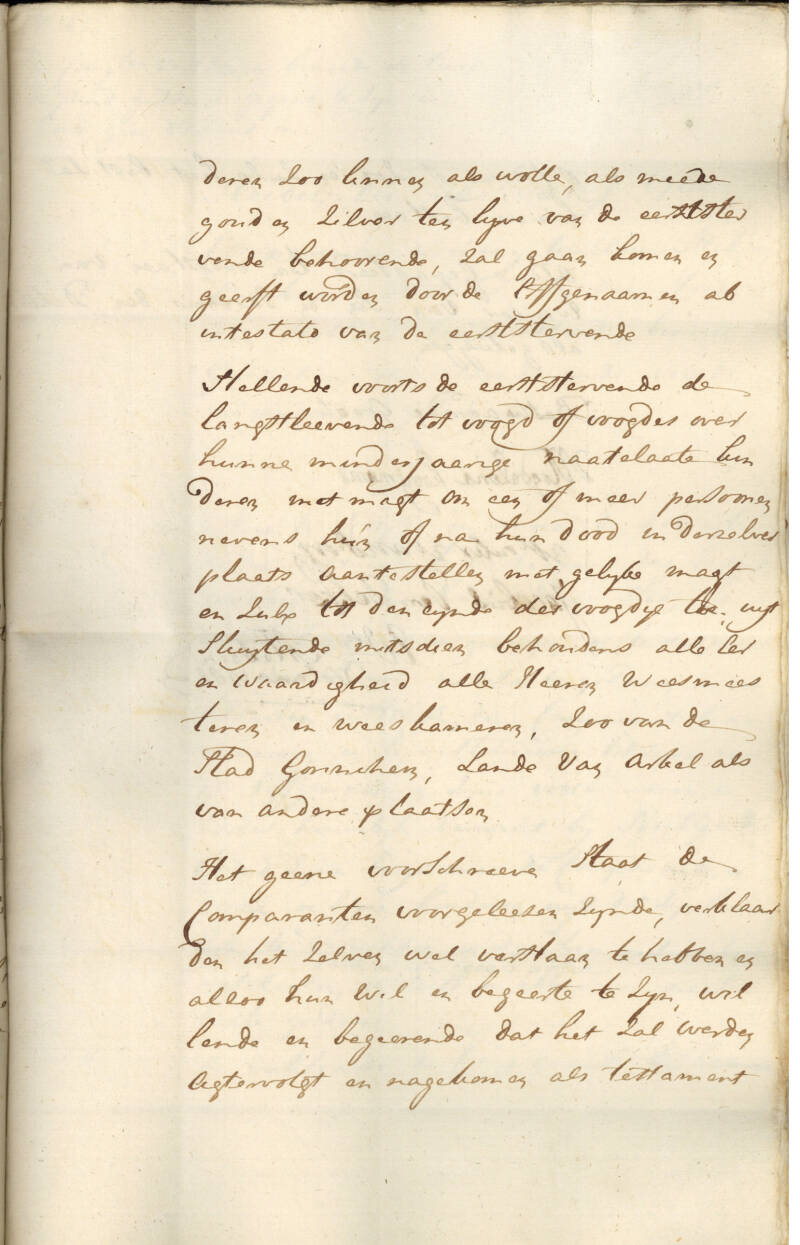 deren zoo linnen als wolle, als meede
goud en zilver ten lyve van de eerstster
vende behoorende, zal gaan komen en
geerft worden door de Erfgenaamen ab
intestato van de eerststervende
Stellende voorts de eerststervende de
langstleevende tot voogd of voogdes over
hunne minderjaarige naatelaate kin
deren met magt om een of meer persoonen
nevens hun of na hun dood in derzelver
plaats aantestellen met gelyke magt
en zulx tot den eynde der voogdye toe, uyt
sluytende mitsdien behoudens alle Eer
en waardigheid alle Heeren Weesmees
teren en weeskameren, zoo van de
Stad Gorinchem, Lande Van Arkel als
van andere plaatsen
Het geene voorschreeve Staat de
Comparanten voorgeleesen zynde, verklaar
den het zelven wel verstaan te hebben en
alzoo hun wil en begeerte te zyn, wil
lende en begeerende dat het zal werden
agtervolgt en nagekomen als testament